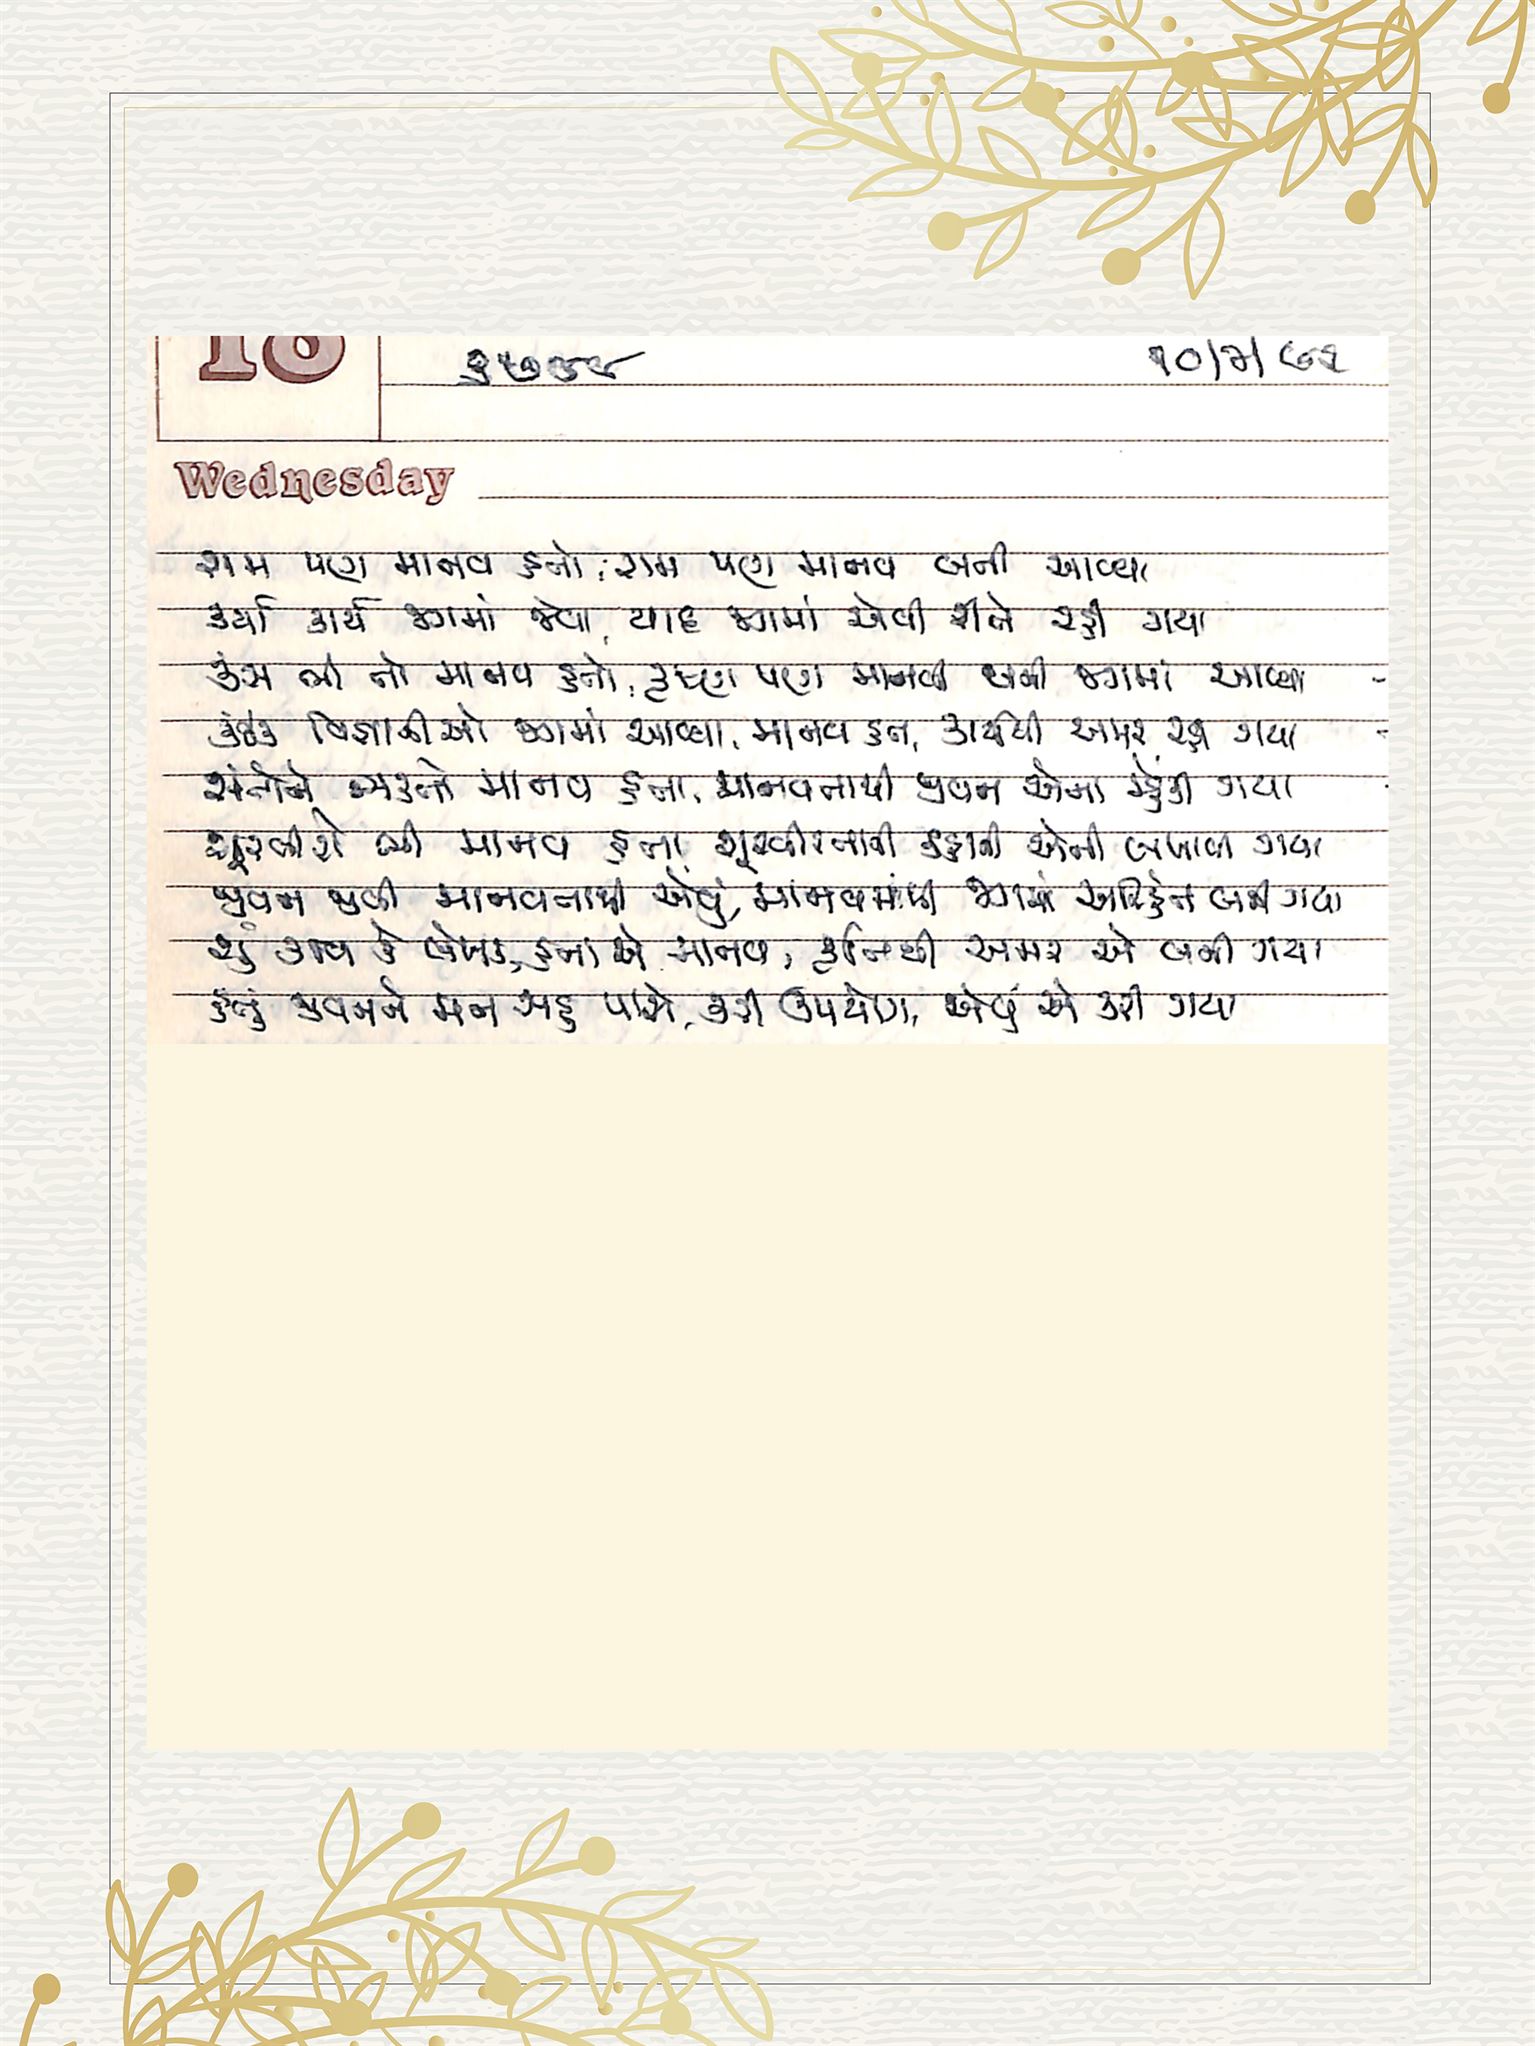 18
૧૦/૭/૯૨
Wednesday
રામ પણ માનવ હતો, રામ પણ માનવ બની આવ્યા
કર્યા કાર્ય જગમાં જેવા, યાદ જગમાં એવી રીતે રહી ગયા
કંસ ભી તો માનવ હતો, કૃષ્ણ પણ માનવી બની જગમાં આવ્યા
કંઈક વિજ્ઞાનીઓ જગમાં આવ્યા, માનવ હતા, કાર્યથી અમર રહી ગયા
સંતોને ભક્તો માનવ હતા, માનવતાથી જીવન એમાં મ્હેંકી ગયા
શૂરવીરો ભી માનવ હતા, શૂરવીરતાની કહાની એની લખાવી ગયા
જીવન જીવી માનવતાથી એવું, માનવમાંથી જગમાં અરિહંત બની ગયા
શું કવિ કે લેખક, હતા એ માનવ, કૃતિથી અમર એ બની ગયા
હતું જીવનને મન સહુ પાસે, કરી ઉપયોગ, એવું એ કરી ગયા